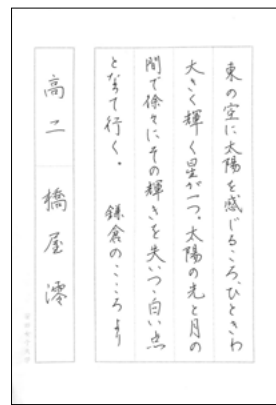 東の空に太陽を感じるころ、ひときわ
大きく輝く星が一つ。太陽の光と月の
間で徐々にその輝きを失いつつ白い点
となって行く。　鎌倉のこころより
高二　橋屋　澪